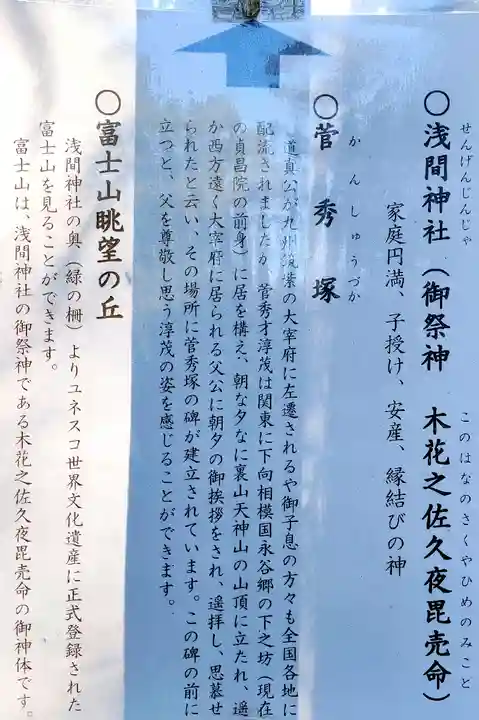 ○浅間神社(御祭神 木花之佐久夜毘売命)
せんげんじんじゃ
このはなのさくやひめのみこと
家庭円満、子授け、安産、縁結びの神
○菅秀塚
かんしゅうづか
道真公が九州筑紫の大宰府に左遷されるや御子息の方々も全国各地に
配流されましたが、菅秀才淳茂は関東に下向相模国永谷郷の下之坊(現在
の貞昌院の前身)に居を構え、朝な夕なに裏山天神山の山頂に立たれ、遥
か西方遠く大宰府に居られる父公に朝夕の御挨拶をされ、遥拝し、思慕せ
られたと云い、その場所に菅秀塚の碑が建立されています。この碑の前に
立つと、父を尊敬し思う淳茂の姿を感じることができます。
○富士山眺望の丘
浅間神社の奥(緑の柵)よりユネスコ世界文化遺産に正式登録された
富士山を見ることができます。
富士山は、浅間神社の御祭神である木花之佐久夜毘売命の御神体です。